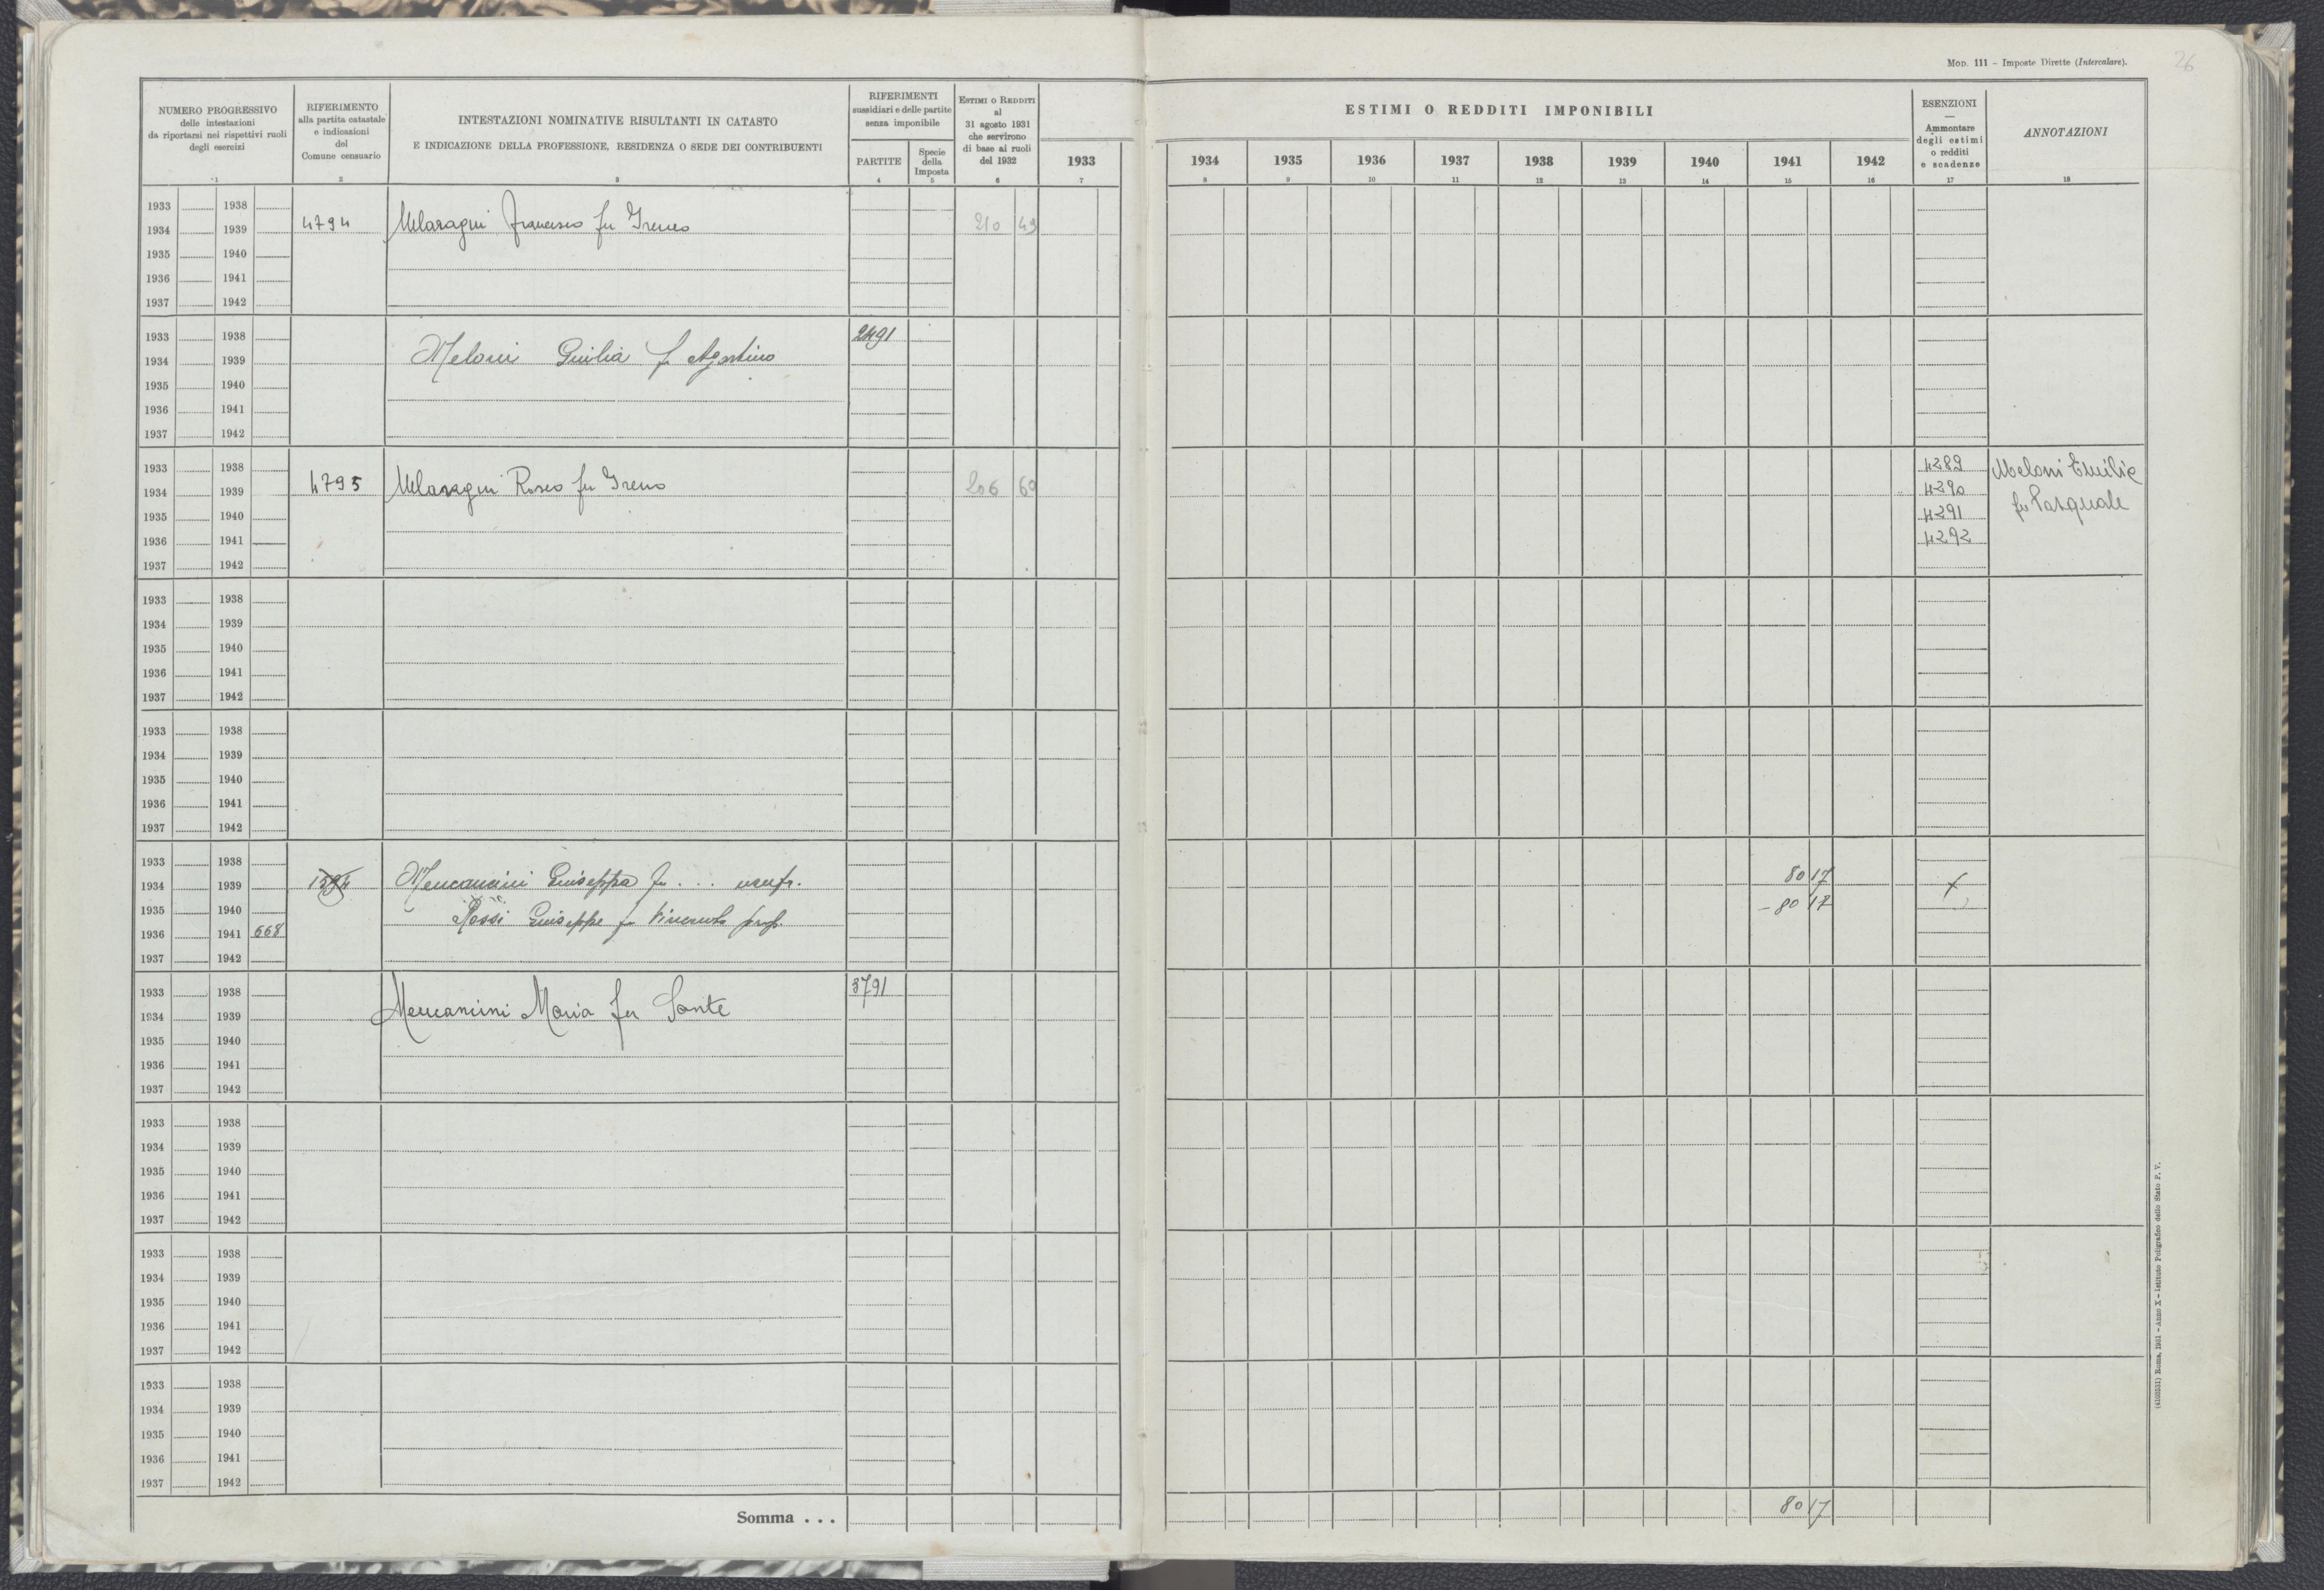 26
MOD. 111 - Imposte Dirette (Intercalare).
NUMERO PROGRESSIVO
delle intestazioni
da riportarsi nei rispettivi ruoli
degli esercizi
1
RIFERIMENTO
alla partita catastale
e indicazioni
del
Comune censuario
2
INTESTAZIONI NOMINATIVE RISULTANTI IN CATASTO
E INDICAZIONE DELLA PROFESSIONE, RESIDENZA O SEDE DEI CONTRIBUENTI
3
RIFERIMENTI
sussidiari e delle partite
senza imponibile
PARTITE
4
Specie
della
Imposta
5
ESTIMI O REDDITI
al
31 agosto 1931
che servirono
di base ai ruoli
del 1932
6
1933
7
ESTIMI O REDDITI IMPONIBILI
1934 1935 1936 1937 1938 1939 1940 1941 1942
8 9 10 11 12 13 14 15 16
ESENZIONI
—
Ammontare
degli estimi
o redditi
e scadenze
17
ANNOTAZIONI
18
1933 1938
1934 1939 4794 Melaragni Francesco fu Ireneo 210 49
1935 1940
1936 1941
1937 1942
1933 1938 2491
1934 1939 Meloni Giulia f. Agostino
1935 1940
1936 1941
1937 1942
1933 1938 4289 Meloni Emilia
1934 1939 4795 Melaragni Rosco fu Ireneo 206 60 4290
1935 1940 4291 fu Pasquale
1936 1941 4292
1937 1942
1933 1938
1934 1939
1935 1940
1936 1941
1937 1942
1933 1938
1934 1939
1935 1940
1936 1941
1937 1942
1933 1938
1934 1939 Mencancini Giuseppa fu . . . usufr. 80 17
1935 1940 Rossi Giuseppe fu Vincenzo prop. - 80 17
1936 1941 668
1937 1942
1933 1938 3791
1934 1939 Mencancini Maria fu Sante
1935 1940
1936 1941
1937 1942
1933 1938
1934 1939
1935 1940
1936 1941
1937 1942
1933 1938
1934 1939
1935 1940
1936 1941
1937 1942
1933 1938
1934 1939
1935 1940
1936 1941
1937 1942
Somma . . . 80 17
(4103531) Roma, 1931 - Anno X - Istituto Poligrafico dello Stato P. V.